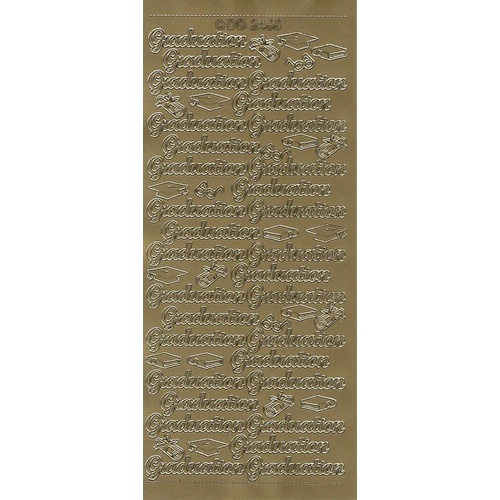 ©DD 2456
Graduation
Graduation
Graduation Graduation
Graduation
Graduation Graduation
Graduation
Graduation Graduation
Graduation
Graduation Graduation
Graduation
Graduation Graduation
Graduation
Graduation Graduation
Graduation
Graduation Graduation
Graduation
Graduation Graduation
Graduation
Graduation Graduation
Graduation
Graduation Graduation